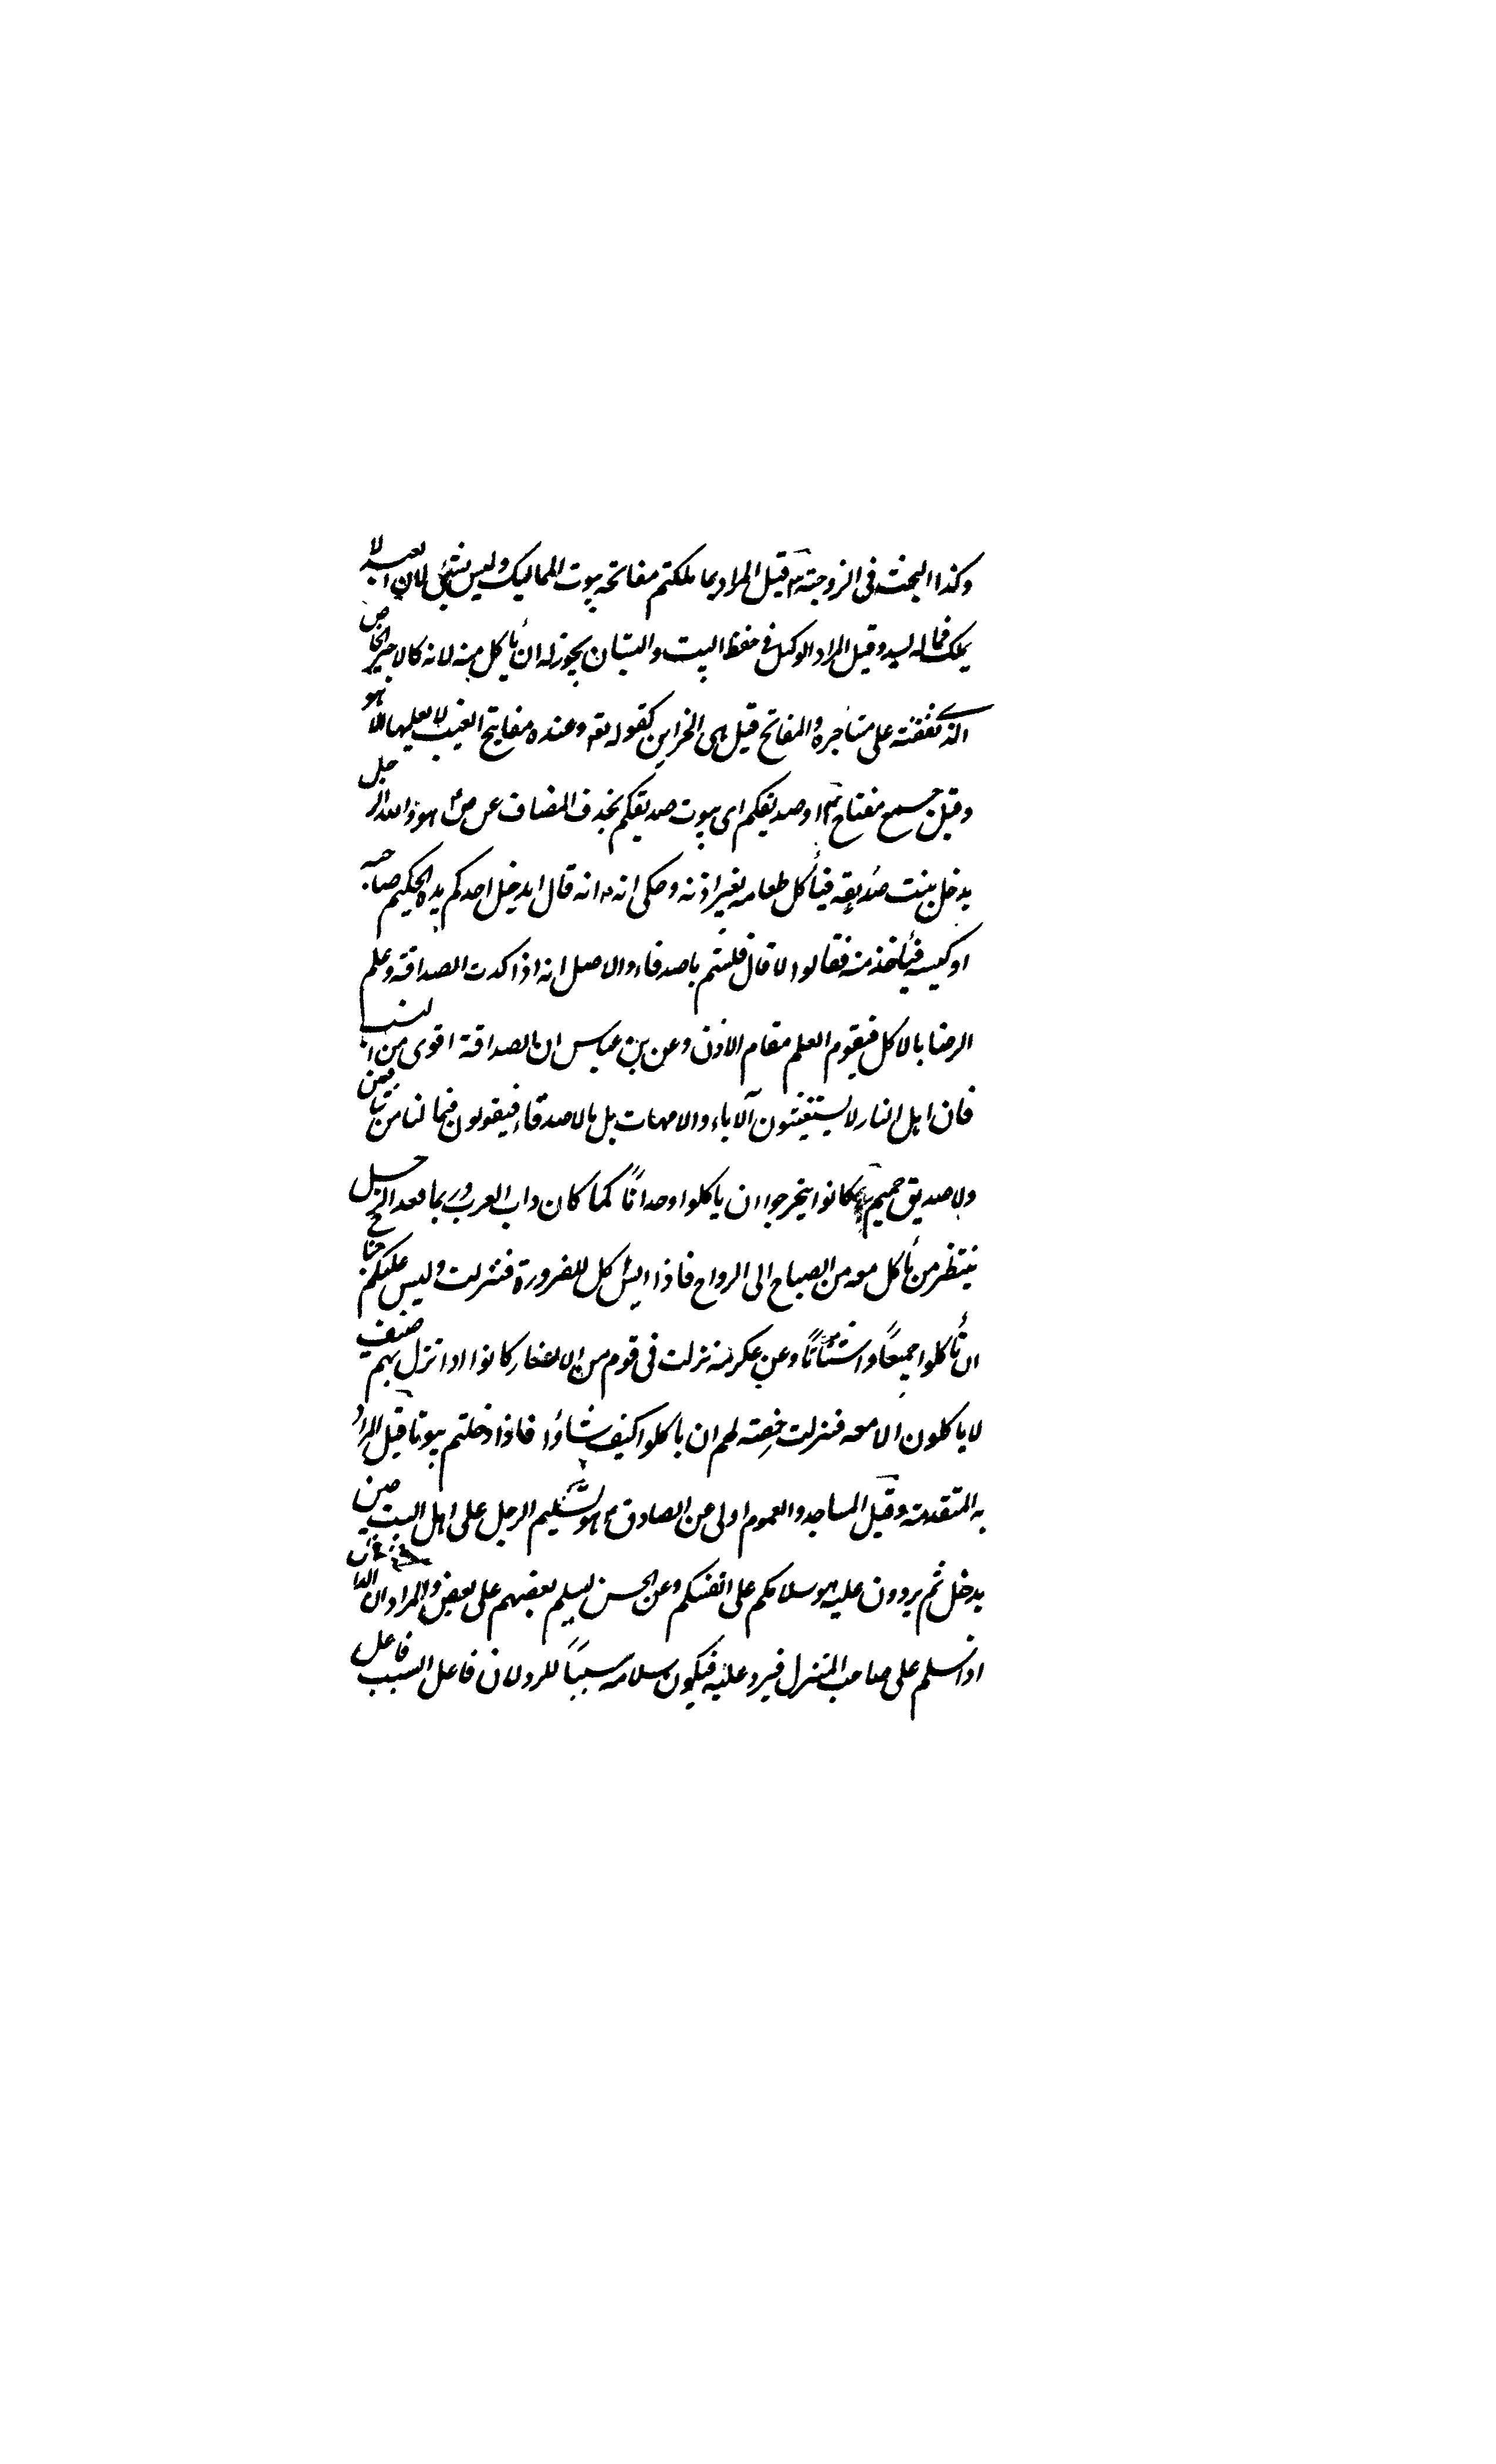 وكذا البحث فى الزوجة ٣ قيل المراد بما ملكتم مفاتحه بيوت المماليك وليس بشئ لان العبد لا
يملك فماله لسيده وقيل المراد الوكيل فى حفظ البيت والبستان يجوز له ان يأكل منه لانه كالاجير الخاص
الذى نفقته على مستاجره والمفاتح قيل هى الخزاين كقوله تع وعنده مفاتح الغيب لا يعلمها الا هو
وقيل جمع مفتاح ٤ او صديقكم اى بيوت صديقكم بحذف المضاف عن ص هو والله الرجل
يدخل بيت صديقه فيأكل طعامه بغير اذنه وحكى انه انه قال ايدخل احدكم يده الى كم صاحبه
او كيسه فيأخذ منه فقالوا لا قال فلستم باصدقاء والاصل انه اذا كدت الصداقة وعلم
الرضا بالاكل فيقوم العلم مقام الاذن وعن بن عباس ان الصداقة اقوى من النسب
فان اهل النار لا يستغيثون الاباء والامهات بل بالاصدقاء فيقولون فما لنا من شافعين
ولا صديق حميم كانوا يتحرجوا ان ياكلوا وحدانًا كما كان داب العرب وربما قعد الرجل
ينتظر من يأكل معه من الصباح الى الرواح فاذا ايس اكل للضرورة فنزلت وليس عليكم جناح
ان تأكلوا جميعًا واشتاتًا وعن عكرمة نزلت فى قوم من الانصار كانوا اذا نزل بهم ضيف
لا ياكلون الا معه فنزلت رخصة لهم ان ياكلوا كيف شاؤا فاذا دخلتم بيوتا قيل المراد
به المتقدمة وقيل المساجد والعموم اولى عن الصادق ٤ هو تسليم الرجل على اهل البيت حين
يدخل ثم يردون عليه هو سلامكم على انفسكم وعن الحسن ليسلم بعضهم على بعض والمراد ان
اذا سلم على صاحب المنزل فيرد عليه فيكون سلامه سببًا للرد لان فاعل السبب فاعل